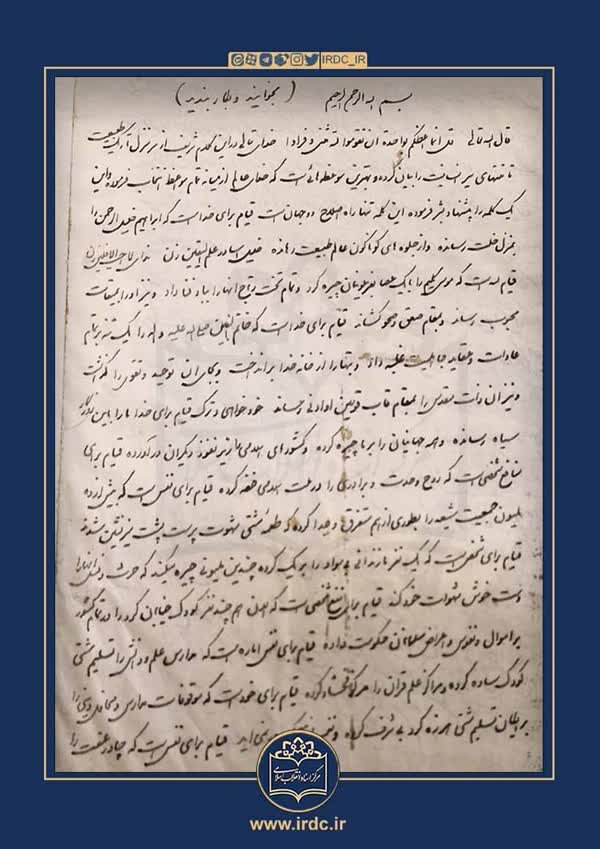 IRDC_IR
بسم الله الرحمن الرحیم (بخوانید و بکار بندید)
قال الله تعالی قل انما اعظکم بواحدة ان تقوموا لله مثنی و فرادا خدای تعالی در این کلام شریف از سر منزل تاریک طبیعت
تا منتهای سیر انسانیت را بیان کرده و بهترین موعظه هائی است که خدای عالم از میانه تمام مواعظ انتخاب فرموده و این
یک کلمه را پیشنهاد بشر فرموده این کلمه تنها راه اصلاح دو جهان است قیام برای خدا است که ابراهیم خلیل الرحمن را
بمنزل خلت رسانده و از جلوه های گوناگون عالم طبیعت رهانده خلیل آسا در علم الیقین زن ندای لا احب الافلین زن
قیام لله است که موسی کلیم را با یک عصا بفرعونیان چیره کرد و تمام تخت و تاج آنها را بباد فنا داد و نیز او را بمیقات
محبوب رساند و بمقام صعق و صحو کشاند قیام برای خدا است که خاتم النبیین صلی الله علیه و اله را یک تنه بر تمام
عادات و عقاید جاهلیت غلبه داد و بتها را از خانه خدا برانداخت و بجای آن توحید و تقوی را گذاشت
و نیز آن ذات مقدس را بمقام قاب قوسین او ادنی رساند خودخواهی و ترک قیام برای خدا ما را باین روزگار
سیاه رسانده و همه جهانیان را بر ما چیره کرده و کشورهای اسلامی را زیر نفوذ دیگران در آورده قیام برای
منافع شخصی است که روح وحدت و برادری را در ملت اسلامی خفه کرده قیام برای نفس است که بیش از ده
ملیون جمعیت شیعه را بطوری از هم متفرق و جدا کرده که طعمه مشتی شهوت پرست پشت میز نشین شدند
قیام برای شخص است که یک نفر مازندرانی بیسواد را بر یک گروه چندین ملیونی چیره میکند که حرث و نسل آنها را
دست خوش شهوات خود کند قیام برای نفع شخصی است که الان هم چند نفر کودک خیابان گرد را در تمام کشور
بر اموال و نفوس و اعراض مسلمانان حکومت داده قیام برای نفس اماره است که مدارس علم و دانش را تسلیم مشتی
کودک ساده کرده و مراکز علم قرآن را مرکز فحشاء کرده قیام برای خود است که موقوفات مدارس و محافل دینی را
برایگان تسلیم مشتی هرزه گرد بی شرف کرده و نفس از نمی آید قیام برای نفس است که چادر عفت را
مرکز اسناد انقلاب اسلامی
www.irdc.ir